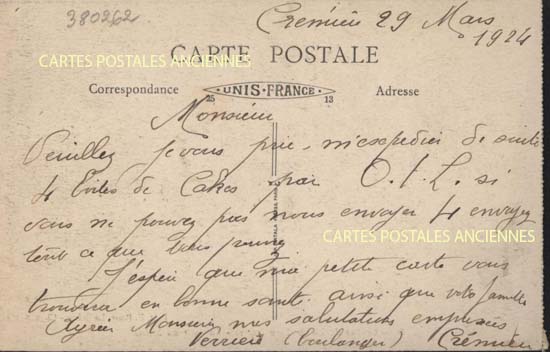 380262
Crémieu 29 Mars
1924
CARTES POSTALES ANCIENNES
CARTE POSTALE
Correspondance
25 UNIS-FRANCE 13
Adresse
Monsieur
Veuillez je vous prie m'expedier de suite
4 toiles de Cakes par O.I.L. si
vous ne pouvez pas nous envoyer 4 envoyez
tout ce que vous pourrez
CARTES POSTALES ANCIENNES
J'espere que ma petite carte vous
trouvera en bonne santé ainsi que votre famille
Agréez Monsieur mes salutations empressées
Perrier (boulanger) Crémieu